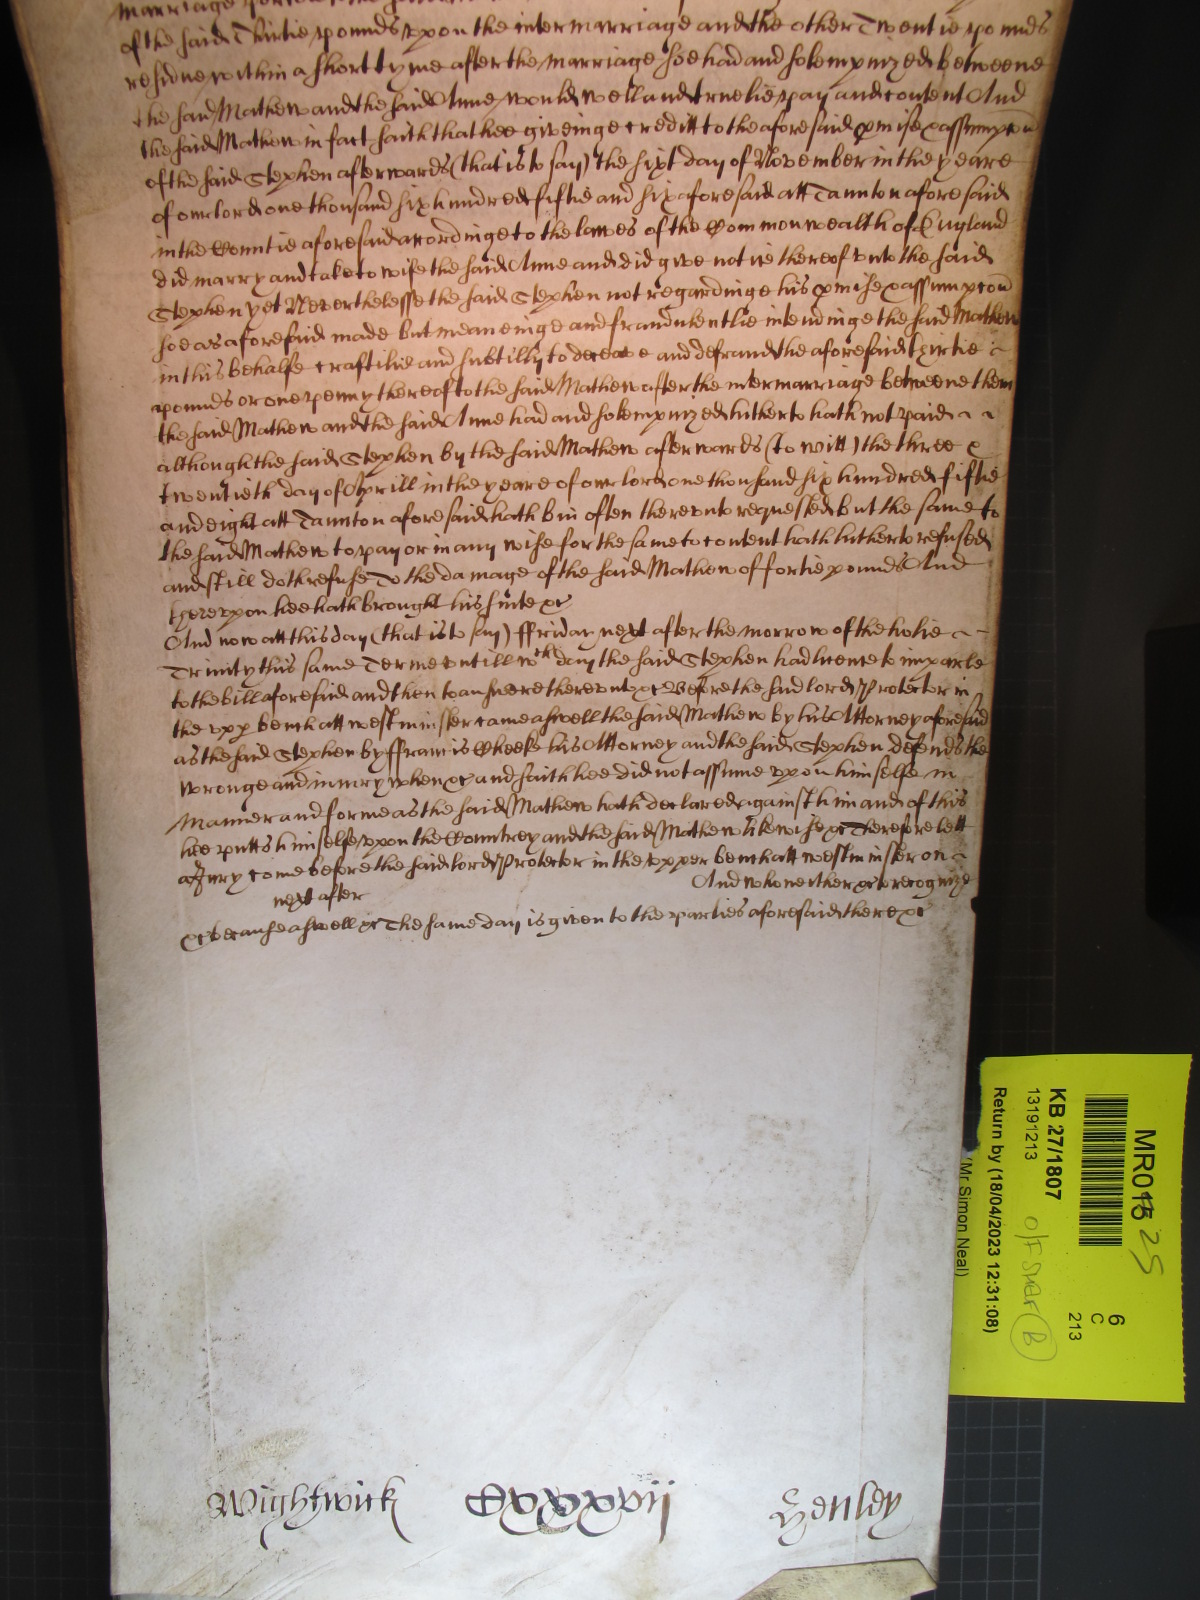 marriage
of the said Thirtie pounds vpon the intermarriage and the other Twentie pounds
residue within a short tyme after the marriage soe had and solempnized betweene
the said Mathew and the said Anne would well and truelie pay and content And
the said Mathew in fact saith that hee giveinge creditt to the aforesaid pmise & assumpcon
of the said Stephen afterwards (that is to say) the sixt day of November in the yeare
of our lord one thousand six hundred fiftie and six aforesaid att Taunton aforesaid
in the Countie aforesaid accordinge to the lawes of the Common wealth of England
did marry and take to wife the said Anne and did give notice thereof vnto the said
Stephen yet Neverthelesse the said Stephen not regardinge his pmise & assumpcon
soe as aforesaid made but meaneinge and fraudulentlie intendinge the said Mathew
in this behalfe craftilie and subtilly to deceave and defraud the aforesaid thirtie
pounds or one penny thereof to the said Mathew after the intermarriage betweene them
the said Mathew and the said Anne had and solempnized hitherto hath not paid
although the said Stephen by the said Mathew afterwards (to witt) the three &
twentieth day of Aprill in the yeare of our lord one thousand six hundred fiftie
and eight att Taunton aforesaid hath bin often therevnto requested but the same to
the said Mathew to pay or in any wise for the same to content hath hitherto refused
and still doth refuse To the damage of the said Mathew of fortie pounds And
herevpon hee hath brought his suite &c
And now att this day (that is to say) ffriday next after the morrow of the holie
Trinity this same Terme vntill wch day the said Stephen had licence to imparle
to the bill aforesaid and then to answere therevnto &c Before the said lord Protector in
the vpp bench att westminster came aswell the said Mathew by his Attorney aforesaid
as the said Stephen by ffrancis Cheeke his Attorney and the said Stephen defends the
wronge and iniury when &c and saith hee did not assume vpon himselfe in
manner and forme as the said Mathew hath declared against him and of this
hee putts himselfe vpon the Countrey and the said Mathew likewise &c Therefore lett
a Jury come before the said lord Protector in the vpper bench att westminster on
next after And who neither &c to recognize
&c because aswell &c The same day is given to the parties aforesaid there &c
Wightwick Cxxxxvii Henley
MR015 25
KB 27/1807
13191213
Return by (18/04/2023 12:31:08)
(Mr Simon Neal)
6
C
213
B